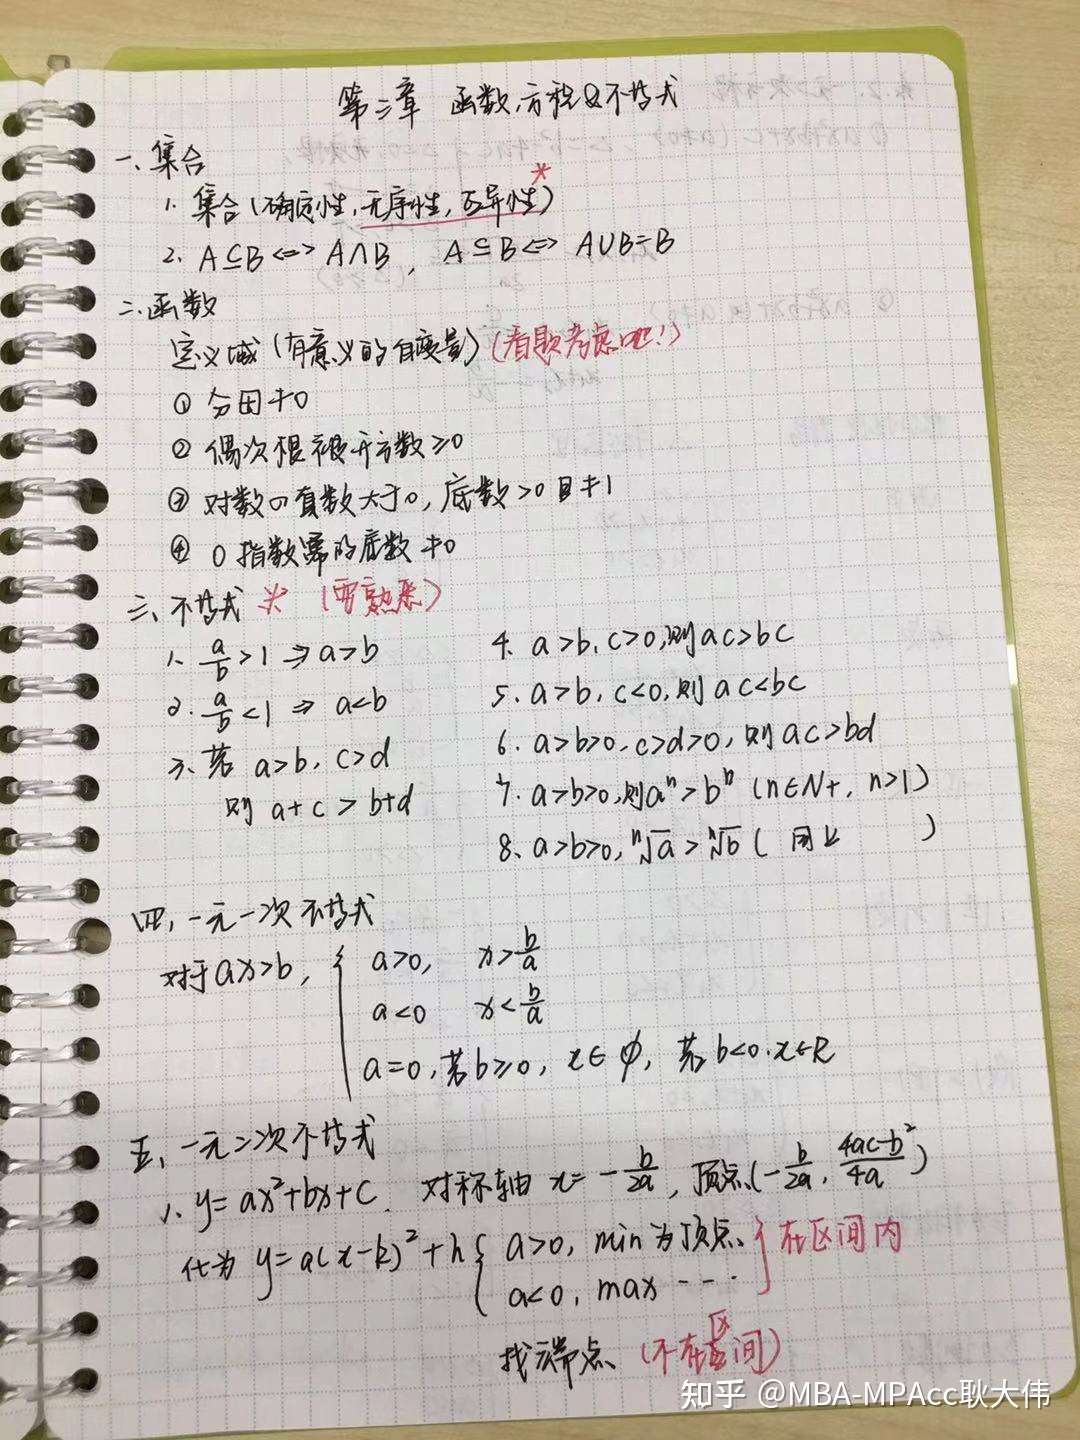 第三章 函数,方程&不等式
一、集合
1. 集合(确定性,无序性,互异性) *
2. A⊆B⇔A∩B, A⊆B⇔A∪B=B
二、函数
定义域(有意义的自变量)(看题考虑吧!)
① 分田≠0
② 偶次根被开方数≥0
③ 对数的真数大于0,底数>0且≠1
④ 0指数幂的底数≠0
三、不等式 * (要熟悉)
1. a/b>1 ⇒ a>b
2. a/b<1 ⇒ a<b
3. 若 a>b, c>d
则 a+c>b+d
4. a>b, c>0,则ac>bc
5. a>b, c<0,则ac<bc
6. a>b>0, c>d>0,则ac>bd
7. a>b>0,则aⁿ>bⁿ (n∈N+, n>1)
8. a>b>0, ⁿ√a>ⁿ√b ( 同上 )
四、一元一次不等式
对于ax>b, { a>0, x>b/a
a<0 x<b/a
a=0,若b≥0, x∈∅, 若b<0,x∈R
五、一元二次不等式
1. y=ax²+bx+c. 对称轴 x=-b/2a, 顶点(-b/2a, 4ac-b²/4a)
化为 y=a(x-k)²+h { a>0, min为顶点 } 在区间内
a<0, max ---
找端点 (不在区间)
知乎 @MBA-MPAcc耿大伟